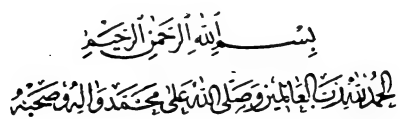 بِسْمِ اللّٰهِ الرَّحْمٰنِ الرَّحِيْمِ
الحمد لله رب العالمين وصلى الله على محمد واله وصحبه